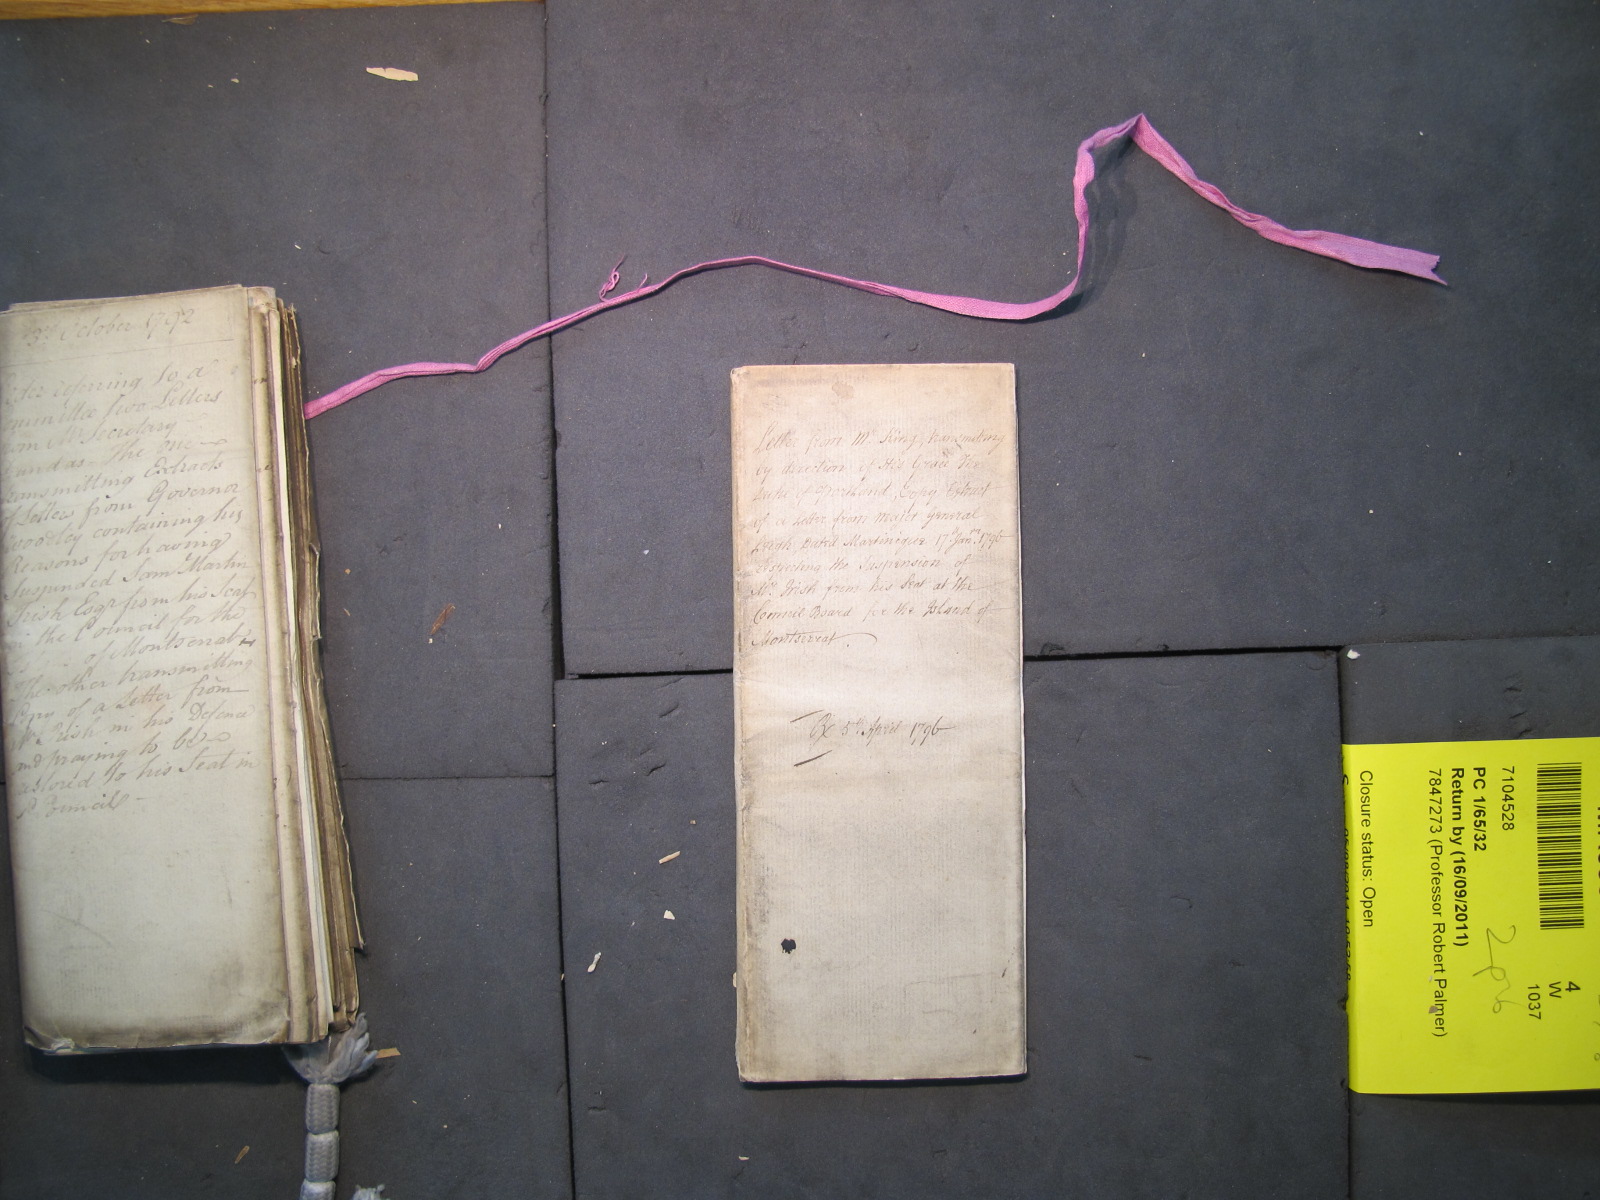 3rd October 1792
referring to a
Committee two Letters
from Mr Secretary
Dundas. The one
transmitting Extracts
of Letters from Governor
Woodley containing his
Reasons for having
Suspended Sam Martin
Irish Esqr from his Seat
in the Council for the
of Montserrat
The other transmitting
Copy of a Letter from
Mr Irish in his Defence
and praying to be
restored to his Seat in
Council
Letter from Mr King, transmitting
by direction of His Grace the
Duke of Portland, Copy Extract
of a Letter from Major General
Leigh, Dated Martinique 17th Janry 1796
respecting the Suspension of
Mr Irish from his Seat at the
Council Board for the Island of
Montserrat.
5th April 1796
4
W
1037
7104528
PC 1/65/32
Return by (16/09/2011)
7847273 (Professor Robert Palmer)
Closure status: Open